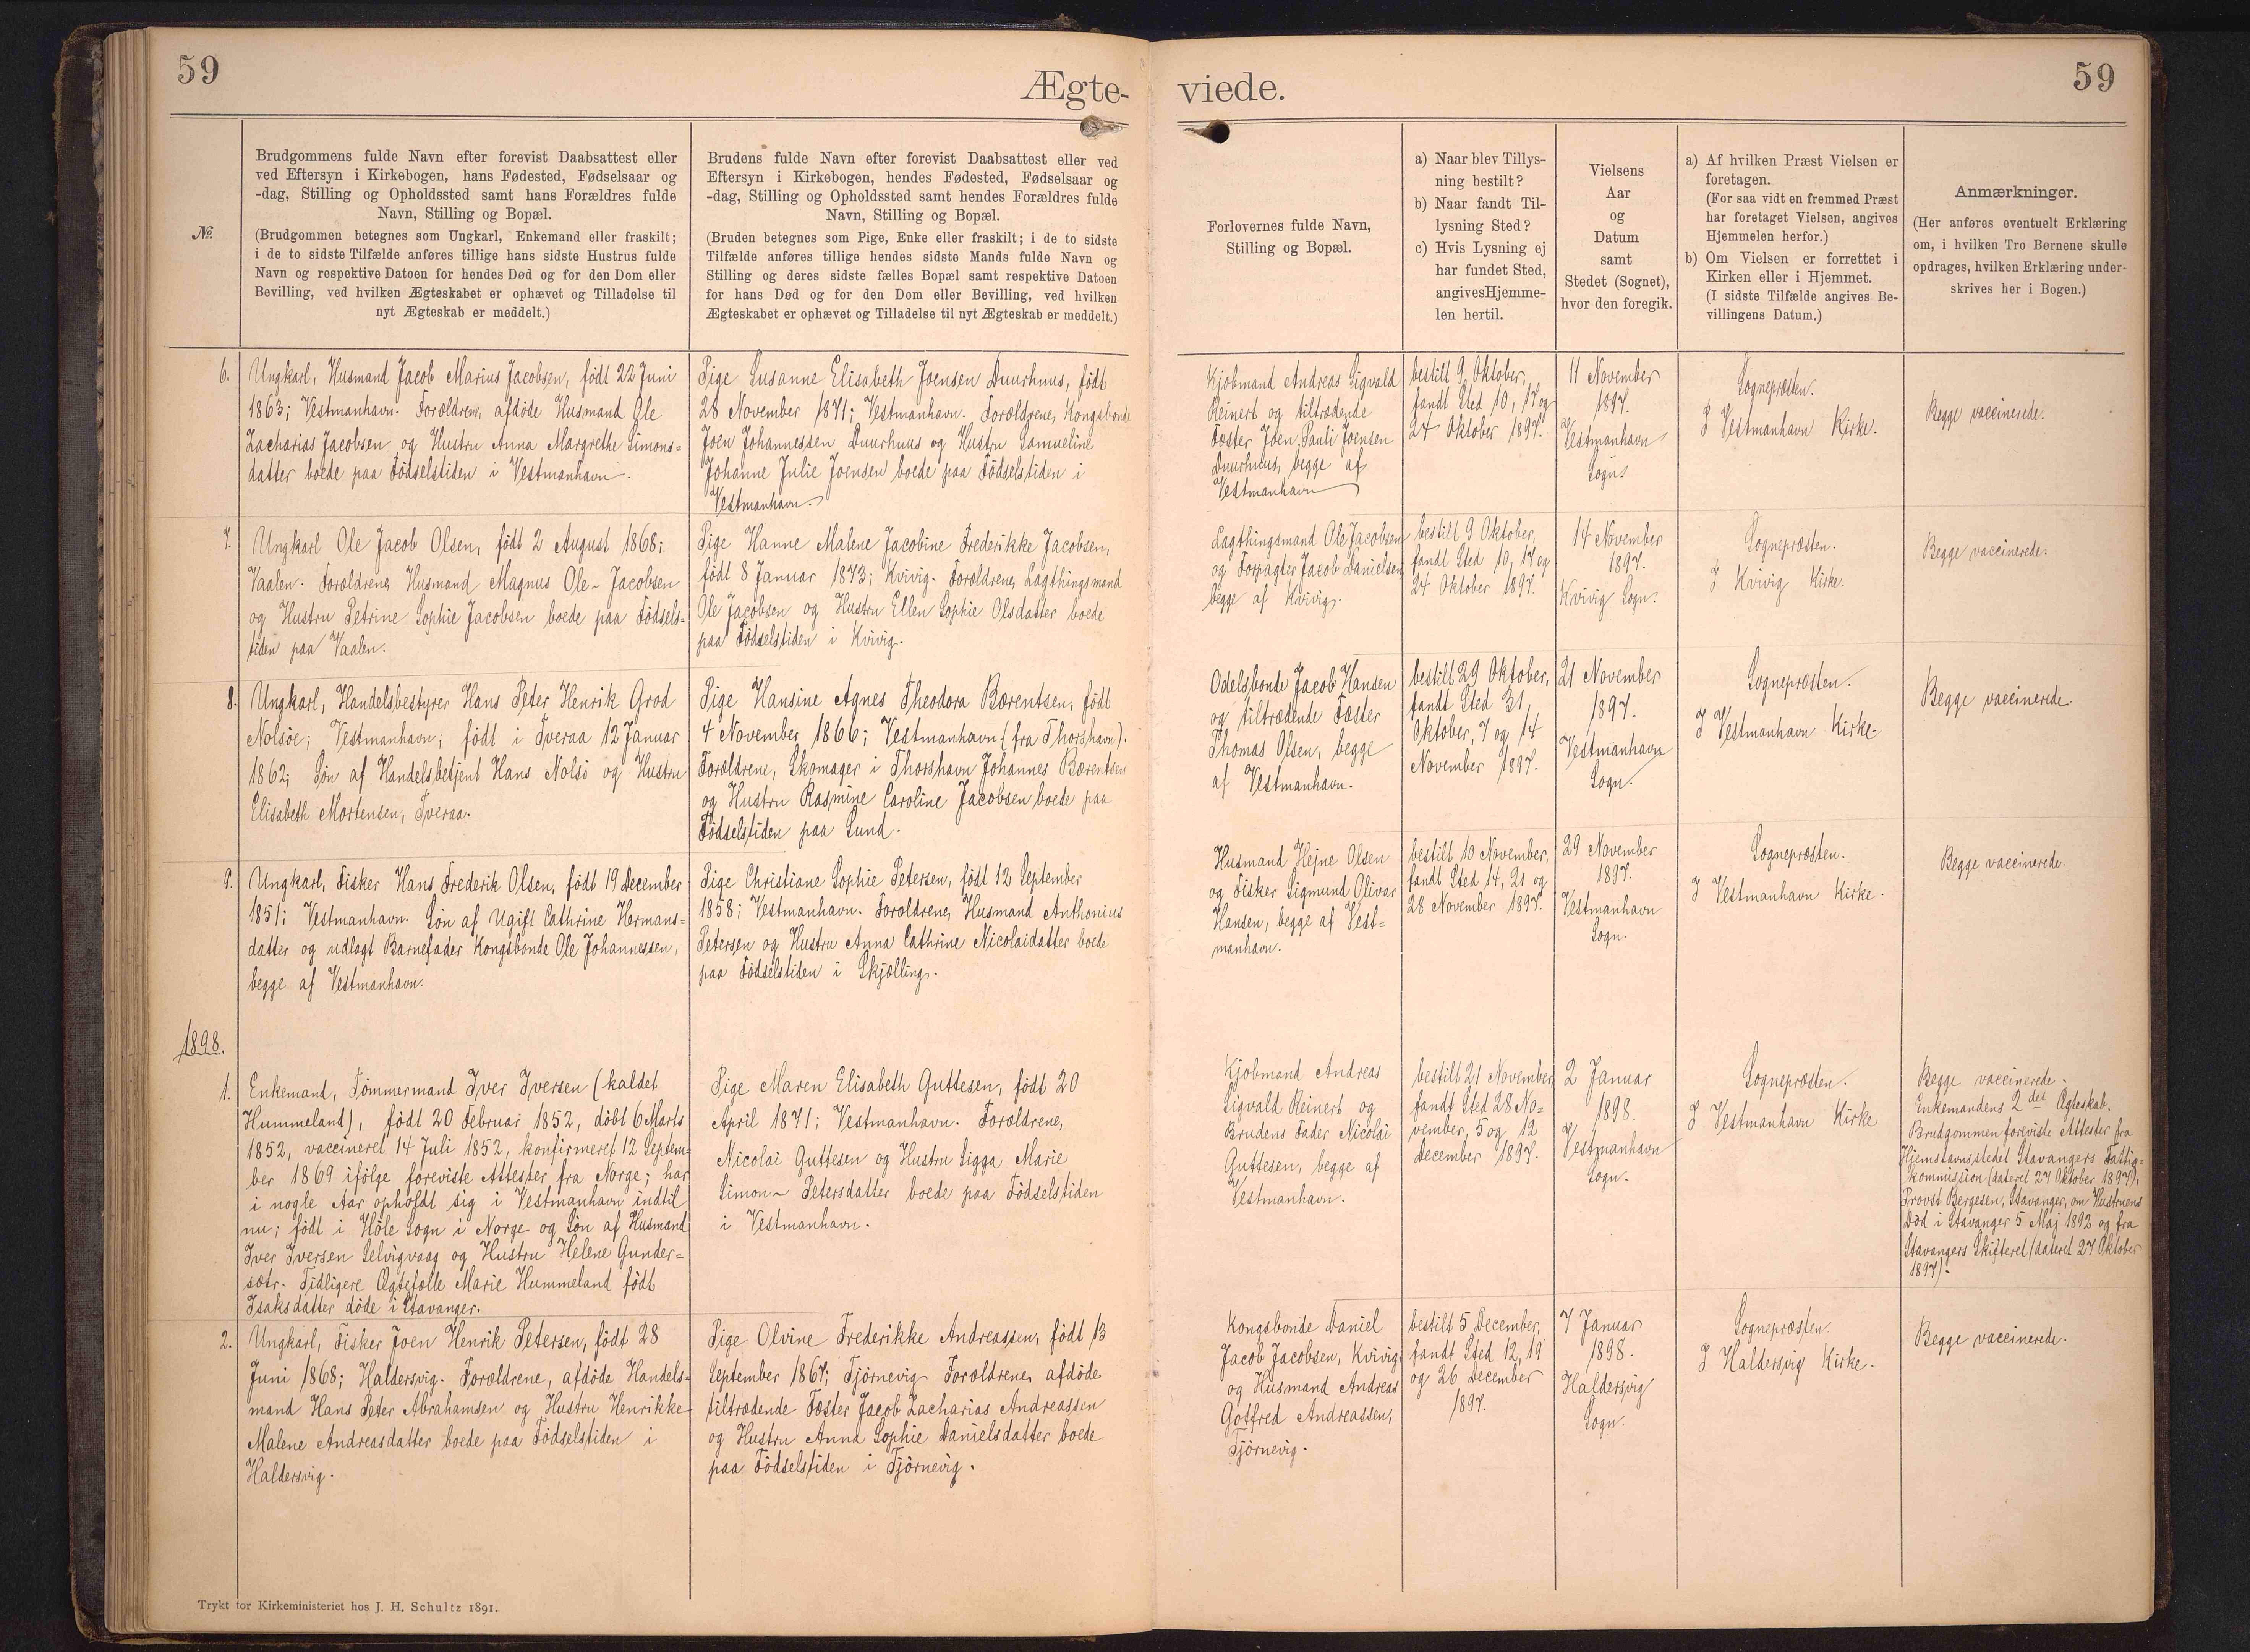 59
Ægte-
viede.
59
№.
Brudgommens fulde Navn efter forevist Daabsattest eller
ved Eftersyn i Kirkebogen, hans Fødested, Fødselsaar og
-dag, Stilling og Opholdssted samt hans Forældres fulde
Navn, Stilling og Bopæl.
(Brudgommen betegnes som Ungkarl, Enkemand eller fraskilt;
i de to sidste Tilfælde anføres tillige hans sidste Hustrus fulde
Navn og respektive Datoen for hendes Død og for den Dom eller
Bevilling, ved hvilken Ægteskabet er ophævet og Tilladelse til
nyt Ægteskab er meddelt.)
Brudens fulde Navn efter forevist Daabsattest eller ved
Eftersyn i Kirkebogen, hendes Fødested, Fødselsaar og
-dag, Stilling og Opholdssted samt hendes Forældres fulde
Navn, Stilling og Bopæl.
(Bruden betegnes som Pige, Enke eller fraskilt; i de to sidste
Tilfælde anføres tillige hendes sidste Mands fulde Navn og
Stilling og deres sidste fælles Bopæl samt respektive Datoen
for hans Død og for den Dom eller Bevilling, ved hvilken
Ægteskabet er ophævet og Tilladelse til nyt Ægteskab er meddelt.)
Forlovernes fulde Navn,
Stilling og Bopæl.
a) Naar blev Tillys-
ning bestilt?
b) Naar fandt Til-
lysning Sted?
c) Hvis Lysning ej
har fundet Sted,
angives Hjemme-
len hertil.
Vielsens
Aar
og
Datum
samt
Stedet (Sognet),
hvor den foregik.
a) Af hvilken Præst Vielsen er
foretagen.
(For saa vidt en fremmed Præst
har foretaget Vielsen, angives
Hjemmelen herfor.)
b) Om Vielsen er forrettet i
Kirken eller i Hjemmet.
(I sidste Tilfælde angives Be-
villingens Datum.)
Anmærkninger.
(Her anføres eventuelt Erklæring
om, i hvilken Tro Børnene skulle
opdrages, hvilken Erklæring under-
skrives her i Bogen.)
6.
Ungkarl, Husmand Jacob Marius Jacobsen, födt 22 Juni
1863; Vestmanhavn. Forældrene, afdöde Husmand Ole
Zacharias Jacobsen og Hustru Anna Margrethe Simons=
datter boede paa Födselstiden i Vestmanhavn.
Pige Susanne Elisabeth Joensen Duurhuus, födt
28 November 1871; Vestmanhavn. Forældrene, Kongsbonde
Joen Johannessen Duurhuus og Hustru Samueline
Johanne Julie Joensen boede paa Födselstiden i
Vestmanhavn.
Kjöbmand Andreas Sigvald
Reinert og tiltrædende
Fæster Joen Pauli Joensen
Duurhuus, begge af
Vestmanhavn
bestilt 9 Oktober,
fandt Sted 10, 17 og
24 Oktober 1897.
11 November
1897.
Vestmanhavn
Sogn.
Sognepræsten.
I Vestmanhavn Kirke.
Begge vaccinerede.
7.
Ungkarl Ole Jacob Olsen, födt 2 August 1868;
Vaalen. Forældrene, Husmand Magnus Ole-Jacobsen
og Hustru Petrine Sophie Jacobsen boede paa Födsels=
tiden paa Vaalen.
Pige Hanne Malene Jacobine Frederikke Jacobsen,
födt 8 Januar 1873; Kvivig. Forældrene, Lagthingsmand
Ole Jacobsen og Hustru Ellen Sophie Olsdatter boede
paa Födselstiden i Kvivig.
Lagthingsmand Ole Jacobsen
og Forpagter Jacob Danielsen
begge af Kvivig.
bestilt 9 Oktober,
fandt Sted 10, 17 og
24 Oktober 1897.
14 November
1897.
Kvivig Sogn.
Sognepræsten.
I Kvivig Kirke.
Begge vaccinerede.
8.
Ungkarl, Handelsbestyrer Hans Peter Henrik Grod
Nolsöe; Vestmanhavn; födt i Tveraa 12 Januar
1862; Sön af Handelsbetjent Hans Nolsö og Hustru
Elisabeth Mortensen, Tveraa.
Pige Hansine Agnes Theodora Bærentsen, födt
4 November 1866; Vestmanhavn (fra Thorshavn).
Forældrene, Skomager i Thorshavn Johannes Bærentsen
og Hustru Rasmine Caroline Jacobsen boede paa
Födselstiden paa Sund.
Odelsbonde Jacob Hansen
og tiltrædende Fæster
Thomas Olsen, begge
af Vestmanhavn.
bestilt 29 Oktober,
fandt Sted 31
Oktober, 7 og 14
November 1897.
21 November
1897.
Vestmanhavn
Sogn.
Sognepræsten.
I Vestmanhavn Kirke.
Begge vaccinerede.
9.
Ungkarl, Fisker Hans Frederik Olsen, födt 19 December
1851; Vestmanhavn. Sön af Ugift Cathrine Hermans=
datter og udlagt Barnefader Kongsbonde Ole Johannessen,
begge af Vestmanhavn.
Pige Christiane Sophie Petersen, födt 12 September
1858; Vestmanhavn. Forældrene, Husmand Anthonius
Petersen og Hustru Anna Cathrine Nicolaidatter boede
paa Födselstiden i Skjælling.
Husmand Hejne Olsen
og Fisker Sigmund Olivar
Hansen, begge af Vest=
manhavn.
bestilt 10 November,
fandt Sted 14, 21 og
28 November 1897.
29 November
1897.
Vestmanhavn
Sogn.
Sognepræsten.
I Vestmanhavn Kirke.
Begge vaccinerede.
1898.
1.
Enkemand, Tömmermand Iver Iversen (kaldet
Hummeland), födt 20 Februar 1852, döbt 6 Marts
1852, vaccineret 14 Juli 1852, konfirmeret 12 Septem=
ber 1869 ifölge foreviste Attester fra Norge; har
i nogle Aar opholdt sig i Vestmanhavn indtil
nu; födt i Höle Sogn i Norge og Sön af Husmand
Iver Iversen Selvigvaag og Hustru Helene Gunder=
sætr. Tidligere Ægtefælle Marie Hummeland födt
Isaksdatter döde i Stavanger.
Pige Maren Elisabeth Guttesen, födt 20
April 1871; Vestmanhavn. Forældrene,
Nicolai Guttesen og Hustru Sigga Marie
Simon- Petersdatter boede paa Födselstiden
i Vestmanhavn.
Kjöbmand Andreas
Sigvald Reinert og
Brudens Fader Nicolai
Guttesen, begge af
Vestmanhavn.
bestilt 21 November,
fandt Sted 28 No=
vember, 5 og 12
December 1897.
2 Januar
1898.
Vestmanhavn
Sogn.
Sognepræsten.
I Vestmanhavn Kirke
Begge vaccinerede.
Enkemandens 2det Ægteskab.
Brudgommen foreviste Attester fra
Hjemstavnsstedet Stavangers Fattig=
kommission (dateret 27 Oktober 1897),
Provst Bergesen, Stavanger, om Hustruens
Död i Stavanger 5 Maj 1892 og fra
Stavangers Skifteret (dateret 27 Oktober
1897).
2.
Ungkarl, Fisker Joen Henrik Petersen, födt 28
Juni 1868; Haldersvig. Forældrene, afdöde Handels=
mand Hans Peter Abrahamsen og Hustru Henrikke
Malene Andreasdatter boede paa Födselstiden i
Haldersvig.
Pige Olvine Frederikke Andreassen, födt 13
September 1867; Tjörnevig. Forældrene, afdöde
tiltrædende Fæster Jacob Zacharias Andreassen
og Hustru Anna Sophie Danielsdatter boede
paa Födselstiden i Tjörnevig.
Kongsbonde Daniel
Jacob Jacobsen, Kvivig,
og Husmand Andreas
Gotfred Andreassen,
Tjörnevig.
bestilt 5 December,
fandt Sted 12, 19
og 26 December
1897.
7 Januar
1898.
Haldersvig
Sogn.
Sognepræsten.
I Haldersvig Kirke.
Begge vaccinerede.
Trykt for Kirkeministeriet hos J. H. Schultz 1891.